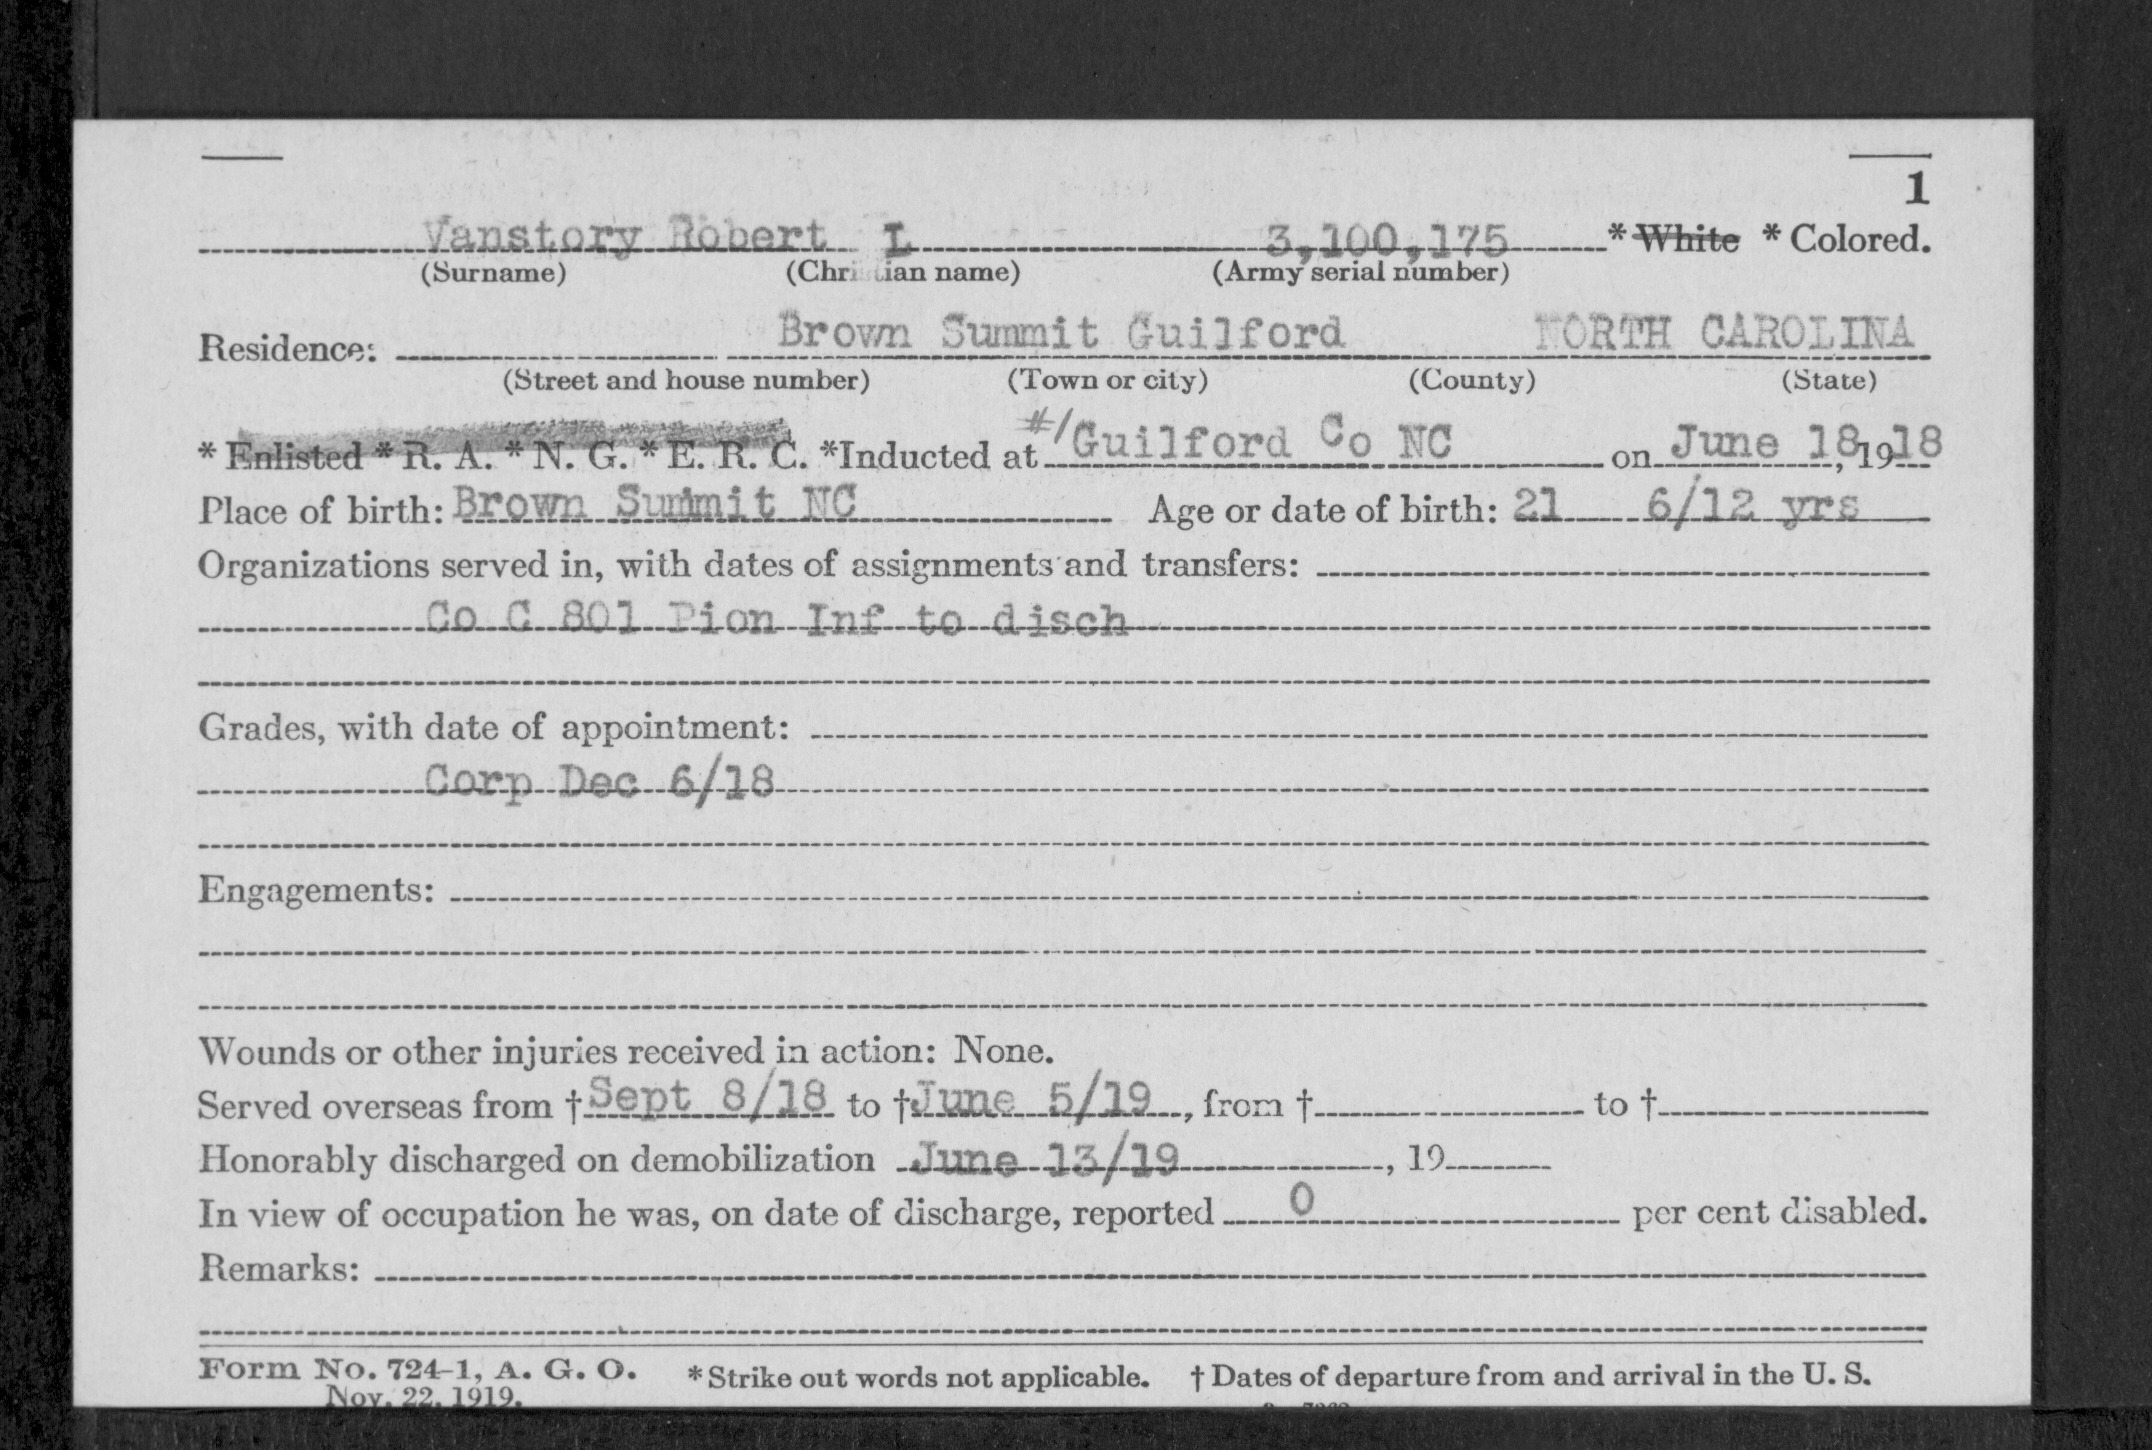 1
Vanstory Robert L 3,100,175 * White * Colored.
(Surname) (Christian name) (Army serial number)
Residence: Brown Summit Guilford NORTH CAROLINA
(Street and house number) (Town or city) (County) (State)
* Enlisted * R. A. * N. G. * E. R. C. *Inducted at #1 Guilford Co NC on June 18, 1918
Place of birth: Brown Summit NC Age or date of birth: 21 6/12 yrs
Organizations served in, with dates of assignments and transfers:
Co C 801 Pion Inf to disch
Grades, with date of appointment:
Corp Dec 6/18
Engagements:
Wounds or other injuries received in action: None.
Served overseas from † Sept 8/18 to † June 5/19, from † to †
Honorably discharged on demobilization June 13/19, 19
In view of occupation he was, on date of discharge, reported 0 per cent disabled.
Remarks:
Form No. 724-1, A. G. O. * Strike out words not applicable. † Dates of departure from and arrival in the U. S.
Nov. 22, 1919.